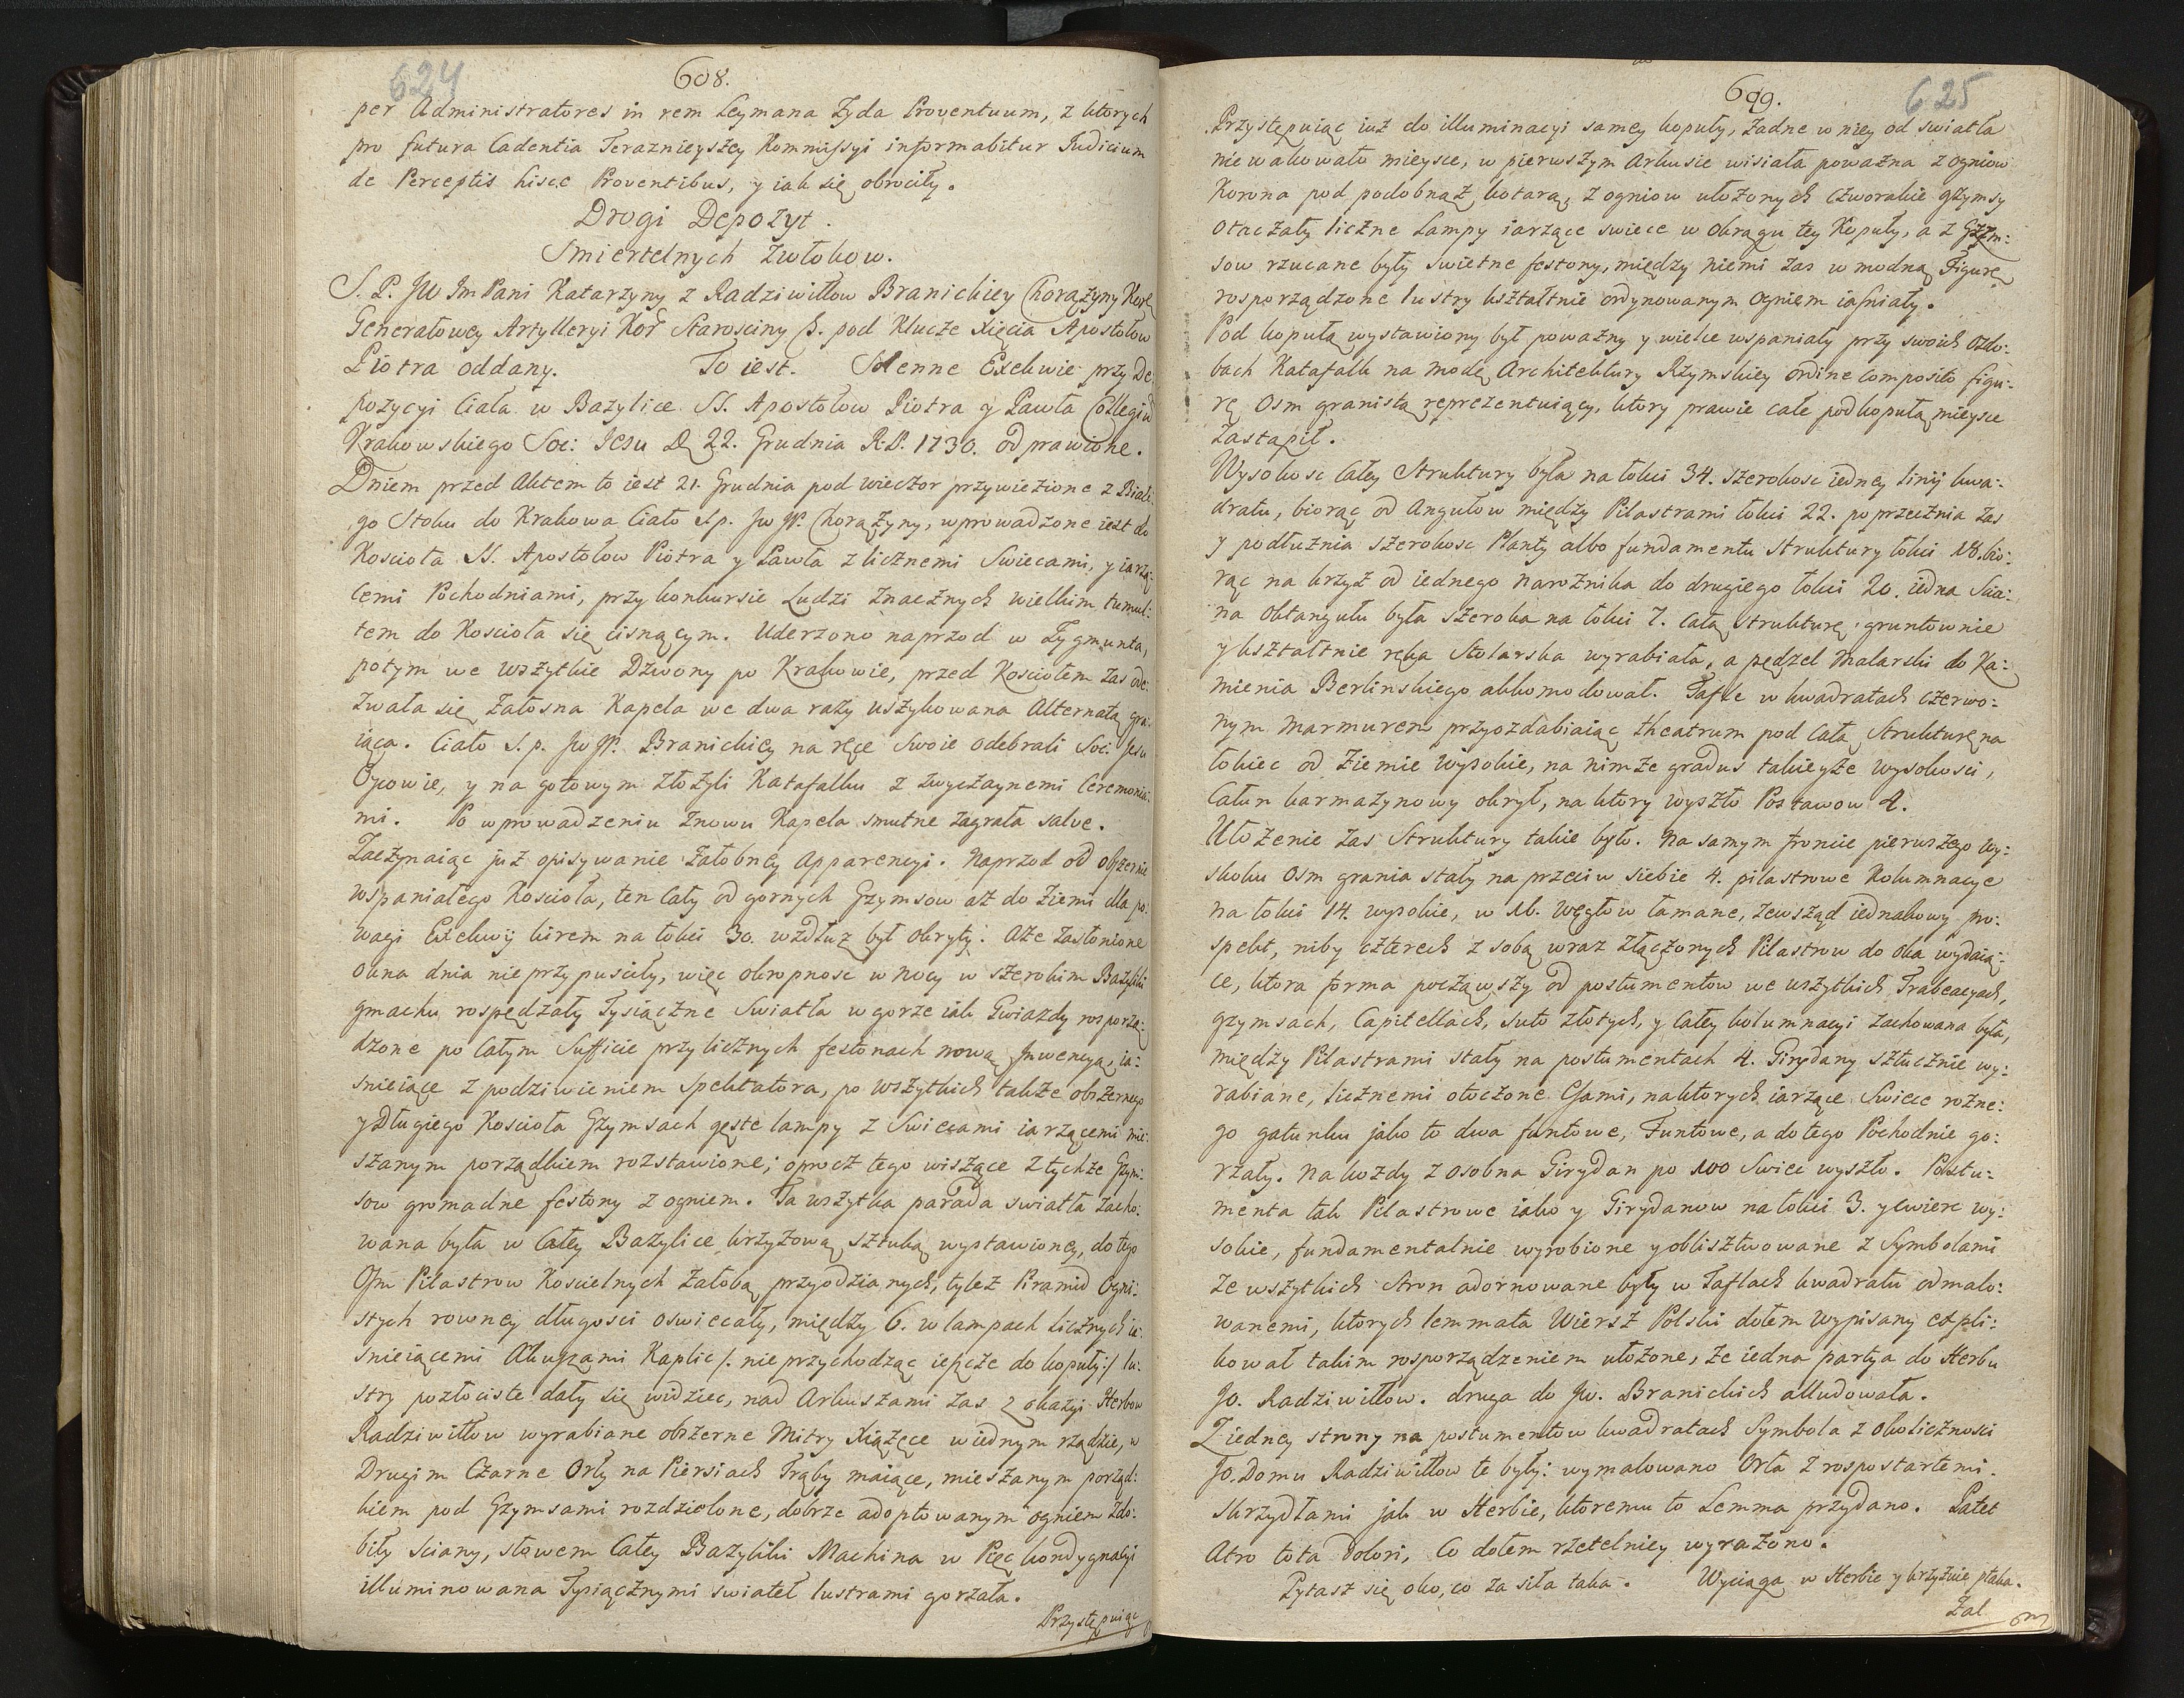 624
608.
per Administratores in rem Leymana Zyda Proventuum, z ktorych
pro futura Cadentia Teraznieyszey Kommissyi informabitur Judicium
de Perceptis hisce Proventibus, y iak się obrociły.
Drogi Depozyt.
Smiertelnych Zwłokow.
S. P. JW Im Pani Katarzyny z Radziwiłłow Branickiey Chorązyny Kor
Generałowey Artylleryi Kor Starosciny B. pod Klucze xięcia Apostołow
Piotra oddany. To iest. Solenne Exekwie przy De
pozycyi Ciała w Bazylice SS. Apostołow Piotra y Pawła Collegiu
Krakowskiego Soc: Jesu D 22. Grudnia R.P. 1730. odprawione.
Dniem przed Aktem to iest 21. Grudnia pod wieczor przywiezione z Białe
go Stoku do Krakowa Ciało s.p. JW JP. Chorązyny, wprowadzone iest do
Kosciola SS. Apostołow Piotra y Pawła z licznemi Swiecami, y iarzą-
cemi Pochodniami, przy konkursie Ludzi znacznych wielkim tumul-
tem do Kosciola się cisnącym. Uderzono naprzod w Zygmunta,
potym we wszytkie Dzwony po Krakowie, przed Kosciołem zas ode-
zwała się załosna Kapela we dwa razy uszykowana Alternatą gra-
iąca. Ciało s.p. JW JP. Branickiey na ręce swoie odebrali Soc: Jesu
Oycowie, y na gotowym złożyli Katafalku z zwyczaynemi Ceremonia-
mi. Po wprowadzeniu znowu Kapela smutne zagrała salve.
Zaczynaiąc już opisywanie załobney apparencyi. Naprzod od obszernie
wspaniałego Koscioła, ten cały od gornych Gzymsow aż do Ziemi dla po-
wagi Exekwij kirem na łokci 30. wzdłuz był okryty. Aże zasłonione
okna dnia nie przypusciły, więc okropnosc w nocy w szerokim Bazyliki
gmachu rospędzały Tysiączne Swiatła w gorze iak Gwiazdy rosporzą-
dzone po całym Sufficie przy licznych festonach nową Inwencyą, ia-
snieiące z podziwieniem spektatora, po wszytkich także obszernego
y długiego Koscioła Gzymsach gęste lampy z Swiecami iarzącemi mie-
szanym porządkiem rozstawione; oprocz tego wiszące z tychże Gzym-
sow gromadne festony z ogniem. Ta wszytka parada swiatła zacho-
wana była w całey Bazylice krzyzową sztuką wystawioney, do tego
Osm Pilastrow Koscielnych załobą przyodzianych, tyleż Piramid Ogni-
stych rowney długosci oswiecały, między 6. w lampach licznych ia-
snieiącemi Arkuszami Kaplic /: nie przychodząc ieszcze do kopuły:/ lu-
stry pozłociste dały się widziec, nad Arkuszami zas z okazyi Herbow
Radziwiłłow wyrabiane obszerne Mitry Xiążęce w iednym rządzie, w
Drugim Czarne Orły na Piersiach Trąby maiące, mieszanym porząd-
kiem pod Gzymsami rozdzielone, dobrze adoptowanym ogniem zdo-
biły sciany, słowem całey Bazyliki Machina w Pięc kondygnacyi
illuminowana Tysiącznymi swiateł lustrami gorzała.
Przystępuiąc
625
609.
Przystępuiąc iuż do illuminacyi samey kopuły, żadne w niey od swiatła
nie wakowało mieysce, w pierwszym Arkusie wisiała poważna z ogniow
Korona pod podobnąż kotarą, z ogniow ułożonych czworakie gzymsy
otaczały liczne Lampy iarzące swiece w okrągu tey Kopuły, a z Gzym-
sow rzucane były swietne festony, między niemi zas w modną Figurę
rosporządzone lustry kształtnie ordynowanym ogniem iasniały.
Pod kopułą wystawiony był poważny y wielce wspaniały przy swoich ozdo-
bach Katafalk na modę Architektury Rzymskiey ordine composito figu-
rę Osm granistą reprezentuiący, ktory prawie całe pod kopułą mieysce
Zastąpił.
Wysokosc całey Struktury była na łokci 34. szerokosc iedney linij kwa-
dratu, biorąc od Angułow między Pilastrami łokci 22. poprzecznia zas
y podłużnia szerokosc Planty albo fundamentu struktury łokci 18. bio-
rąc na krzyż od iednego narożnika do drugiego łokci 20. iedna Scia-
na oktangułu była szeroka na łokci 7. całą strukturę gruntownie
y kształtnie ręka stolarska wyrabiała, a pędzel Malarski do Ka-
mienia Berlinskiego akkomodował. Tafle w kwadratach czerwo-
nym marmurem przyozdabiaiąc theatrum pod całą Strukturę na
łokiec od Ziemie wysokie, na nimże gradus takieyże wysokosci,
Całun karmazynowy okrył, na ktory wyszło Postawow 4.
Ułożenie zas Struktury takie było. Na samym froncie pierwszego wy-
skoku Osm grania stały na przeciw siebie 4. pilastrowe Kolumnacye
na łokci 14. wysokie, w 16. węgłow łamane, zewsząd iednakowy pro-
spekt, niby czterech z sobą wraz złączonych Pilastrow do oka wydaią-
ce, ktora forma począwszy od postumentow we wszytkich Trabeacyach,
gzymsach, Capitellach, suto złotych, y całey kolumnacyi zachowana była,
między Pilastrami stały na postumentach 4. Girydany sztucznie wy-
rabiane, licznemi otoczone Esami, na ktorych iarzące Swiece rożne-
go gatunku jako to dwa funtowe, Funtowe, a do tego Pochodnie go-
rzały. na kożdy z osobna Girydan po 100 Swiec wyszło. Postu-
menta tak Pilastrowe iako y Girydanow na łokci 3. y cwierc wy-
sokie, fundamentalnie wyrobione y oblisztwowane z Symbolami
ze wszytkich stron adornowane były w Taflach kwadratu odmalo-
wanemi, ktorych lemmata Wiersz Polski dołem wypisany expli-
kował takim rosporządzeniem ułożone, że iedna partya do Herbu
Jo. Radziwiłłow. druga do Jw. Branickich alludowała.
Z iedney strony na postumentow kwadratach Symbola z okolicznosci
Jo. Domu Radziwiłłow te były: wymalowano Orła z rospostartemi
skrzydłami jak w Herbie, ktoremu to Lemma przydano. Patet
Atro tota dolori, Co dołem rzetelniey wyrażono.
Pytasz się oko, co za siła taka. Wyciąga w Herbie y krzyżuie ptaka.
Zal